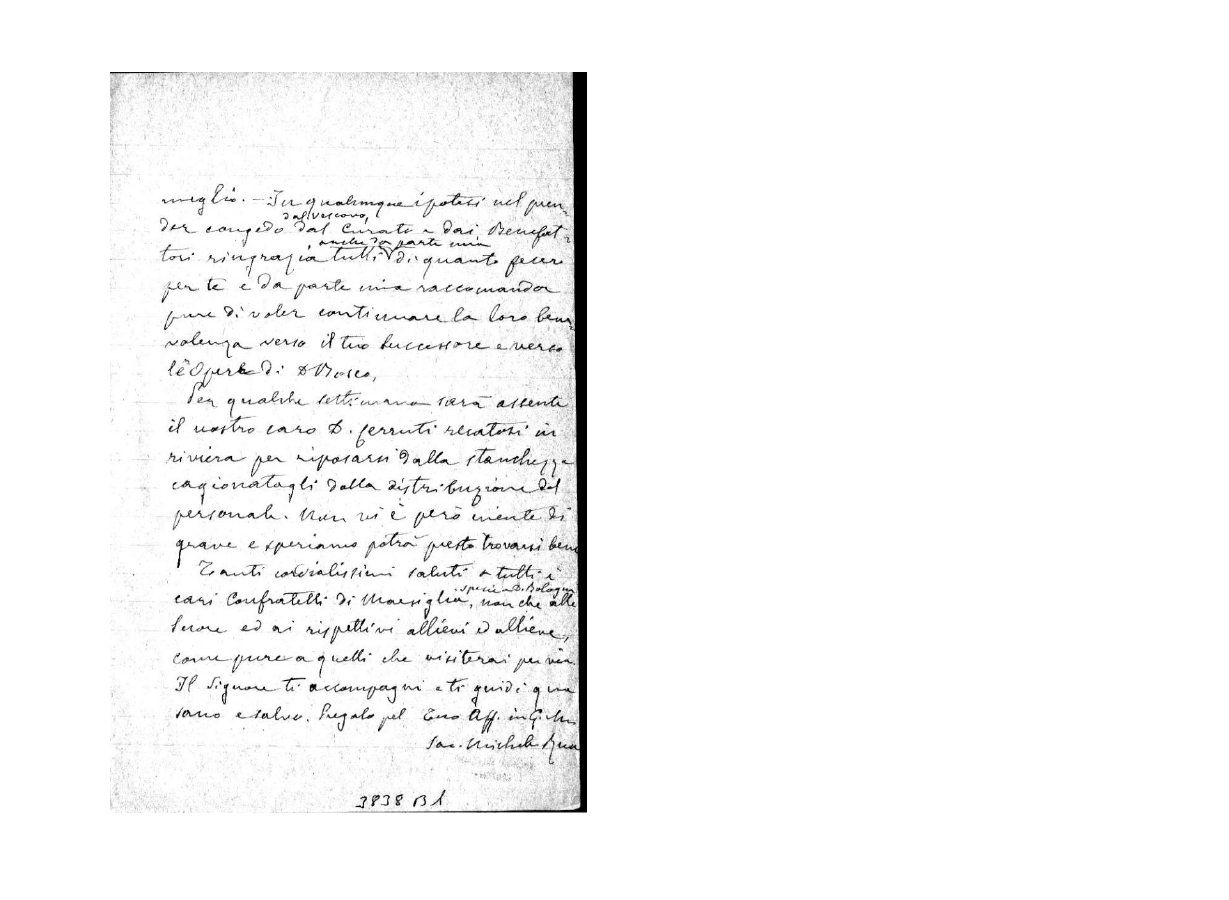 meglio. – In qualunque ipotesi nel pren-
dal Vescovo,
der congedo dal Curato e dai Benefat-
anche da parte mia
tori ringrazia tutti di quanto fecero
per te e da parte mia raccomanda
pure di voler continuare la loro bene-
volenza verso il tuo successore e verso
le Opere di D Bosco,
Per qualche settimana sarà assente
il nostro caro D. Cerruti recatosi in
riviera per riposarsi dalla stanchezza
cagionatagli dalla distribuzione del
personale. Non vi è però niente di
grave e speriamo potrà presto trovarsi bene
Tanti cordialissimi saluti a tutti i
specie a D. Bologna
cari Confratelli di Marsiglia, non che alle
Suore ed ai rispettivi allievi ed allieve,
come pure a quelli che visiterai per via.
Il Signore ti accompagni e ti guidi qua
sano e salvo. Prega pel Tuo Aff. in G.
Sac. Michele Rua
3838 B1